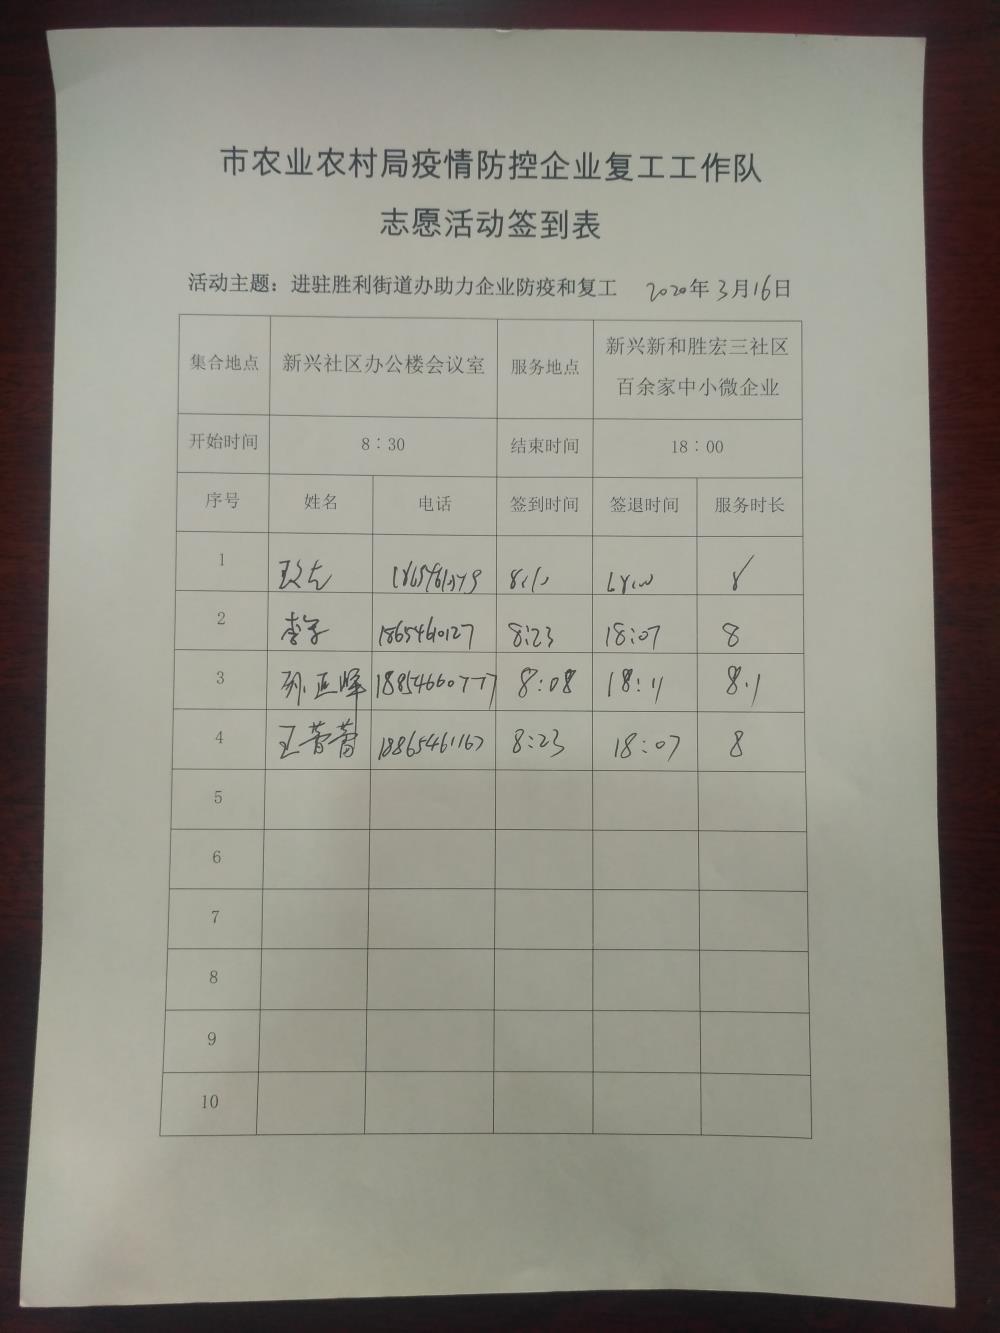 市农业农村局疫情防控企业复工工作队
志愿活动签到表
活动主题：进驻胜利街道办助力企业防疫和复工 2020年3月16日
集合地点 新兴社区办公楼会议室 服务地点 新兴新和胜宏三社区
百余家中小微企业
开始时间 8：30 结束时间 18：00
序号 姓名 电话 签到时间 签退时间 服务时长
1 8
2 18654610127 8:23 18:07 8
3 孙亚晖 18854660777 8:08 18:11 8.1
4 王蕾蕾 18865461167 8:23 18:07 8
5
6
7
8
9
10